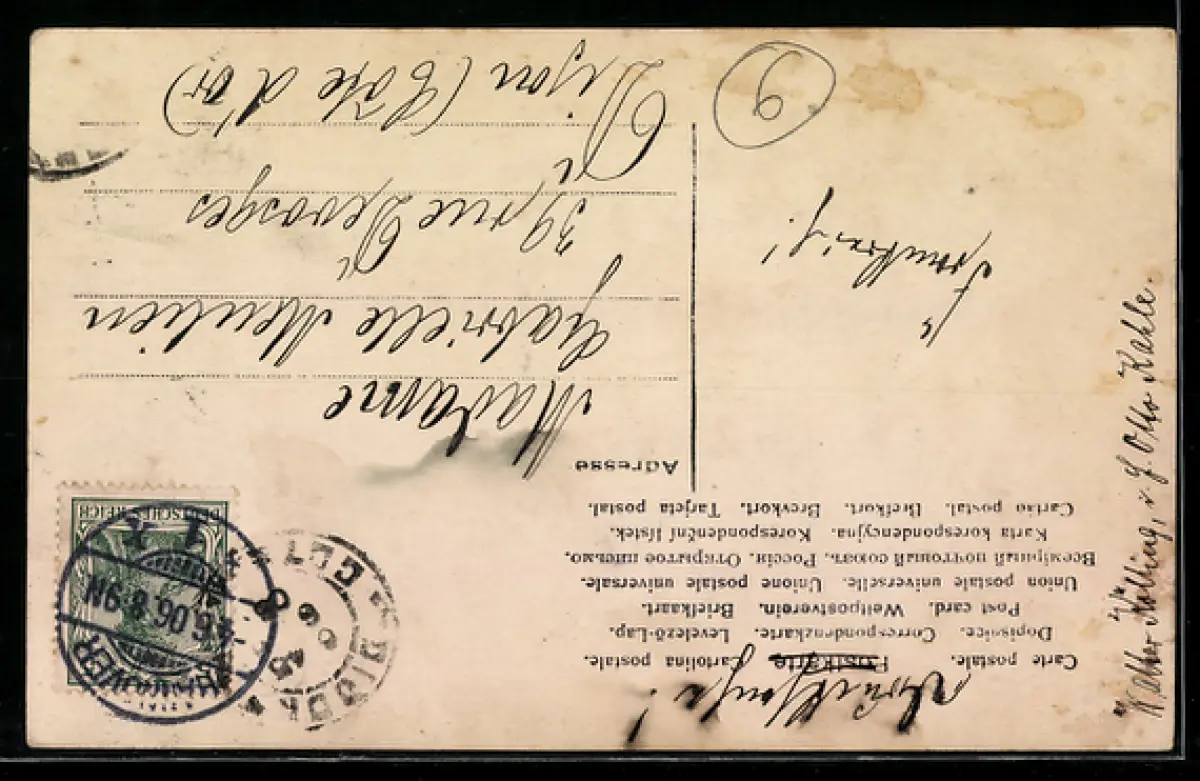 Drucksache!
Carte postale. Postkarte Cartolina postale.
Dopisnice. Correspondenzkarte. Levelező-Lap.
Post card. Weltpostverein. Briefkaart.
Union postale universelle. Unione postale universale
Всемірный почтовый союзъ. Россія. Открытое письмо.
Karta korespondencyjna. Korespondenční lístek.
Cartão postal. Brefkort. Brevkort. Tarjeta postal.
Adresse
Madame
Gabrielle Meulien
39 rue Devosges
à Dijon (Côte d'or)
9
Otto Kahle.
DEUTSCHES REICH
HANNOVER
4.6.06.8-9N
1 X
DIJON